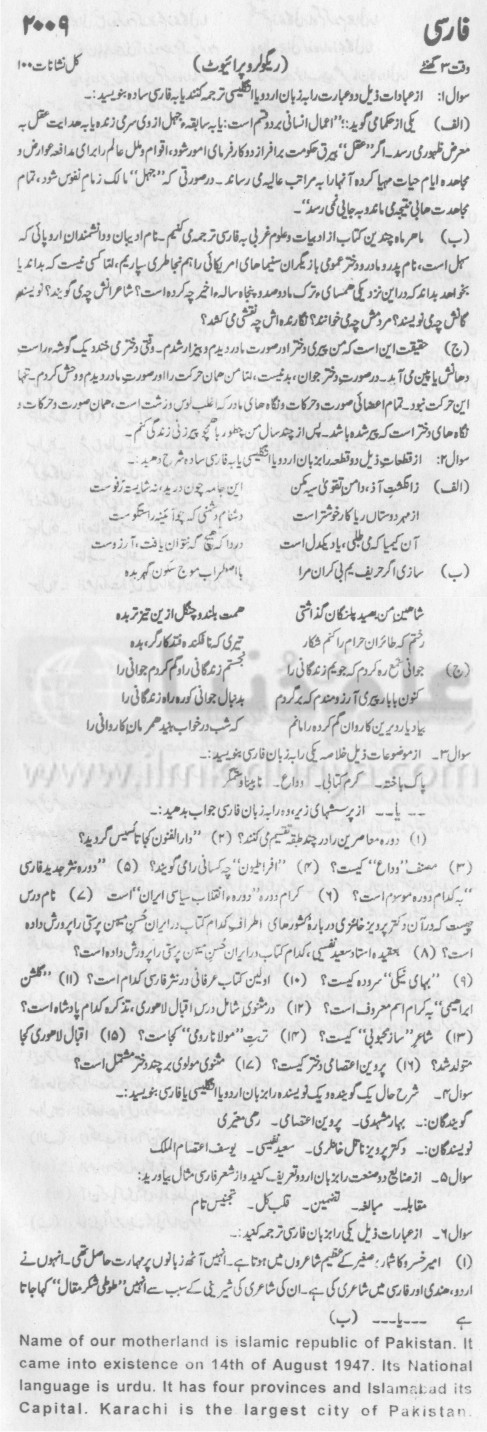 فارسی ۲۰۰۹
وقت ۳ گھنٹے (ریگولر و پرائیوٹ) کل نشانات ۱۰۰
سوال ۱: از عبادات ذیل دو عبارت را به زبان اردو یا انگلیسی ترجمه کنید یا به فارسی ساده بنویسید:۔
(الف) یکی از حکما می گوید: ''اعمال انسانی بر دو قسم است: یا به سابقهٔ جهل از وی سرمی زند یا به هدایت عقل به
معرض ظهوری رسد۔ اگر ''عقل'' بیرق حکومت بر افراز دو کار فرمای امور شود، اقوام و ملل عالم را برای مدافعه عوارض و
مجاهده ایام حیات مهیا کرده آنها را به مراتب عالیه می رساند۔ در صورتی که ''جهل'' مالک زمام نفوس شود، تمام
مجاهدت ها بی نتیجه می ماند و به جایی نمی رسد''۔
(ب) ما هر ماه چندین کتاب از ادبیات و علوم غربی به فارسی ترجمه می کنیم۔ نام ادیبان و دانشمندان اروپائی که
سهل است، نام پدر و مادر و دختر عموی بازیگران سینماهای امریکائی را هم بخاطر می سپاریم، اما کسی نیست که بداند یا
بخواهد بداند که در این نزدیکی همسایهٔ ترک ما در صد و پنجاه ساله اخیر چه کرده است؟ شاعرانش چه می گویند؟ نویسند
گانش چه می نویسند؟ مردمش چه می خوانند؟ نگارنده اش چه نقشی می کشد؟
(ج) حقیقت این است که من پیری دختر را در صورت مادر دیدم و بیزار شدم۔ وقتی دختر می خندد یک گوشه راست
دهانش پایین می آید۔ در صورت دختر جوان، بد نیست، اما من همان حرکت را در صورت مادر دیدم و وحش کردم۔ تنها
این حرکت نبود۔ تمام اعضائی صورت و حرکات و نگاه های مادر که اغلب لوس و زشت است، همان صورت و حرکات و
نگاه های دختر است که پیر شده باشد۔ پس از چند سال من چطور با همچو پیرزنی زندگی کنم۔
سوال ۲: از قطعات ذیل دو قطعه را به زبان اردو یا انگلیسی یا به فارسی ساده شرح دهید:۔
(الف) ز انگشت آز، دامن تقویٰ سیه مکن این جامه چون درید، نه شایسته رفوست
از مهر دوستان ریا کار خوشتر است دشنام دشمنی که چو آئینه راستگوست
آن کیمیا که می طلبی، یار یکدل است دردا که هیچ گه نتوان یافت، آرزوست
(ب) سازی اگر حریف یم بی کران مرا با اضطراب موج سکون گهر بده
شاهین من بصید پلنگان گذاشتی همت بلند و چنگل ازین تیز تر بده
رفتم که طائران حرم را کنم شکار تیری که نا فکنده فتد کارگر، بده
(ج) جوانی شمع ره کردم که جویم زندگانی را نجستم زندگانی را و گم کردم جوانی را
کنون با بار پیری آرزومندم که برگردم بدنبال جوانی کوره راه زندگانی را
بیاد یار دیرین کاروان گم کرده را مانم که شب در خواب بیند همرهان کاروانی را
سوال ۳۔ از موضوعات ذیل خلاصه یکی را به زبان فارسی بنویسید:۔
پاک باخته۔ کرم کتابی۔ وداع۔ نابینا و سنگر
--- یا --- از پرسشهای زیر، ده را به زبان فارسی جواب بدهید:۔
(۱) دوره معاصرین را در چند طبقه تقسیم می کنند؟ (۲) ''دار الفنون کجا تأسیس گردید؟
(۳) مصنف ''وداع'' کیست؟ (۴) ''افراطیون'' چه کسانی را می گویند؟ (۵) ''دوره نثر جدید فارسی
''به کدام دوره موسوم است؟ (۶) کرام دوره ''دوره انقلاب سیاسی ایران'' است (۷) نام درس
چیست که در آن دکتر پرویز خانلری درباره کشورهای اطراف کدام کتاب در ایران حسن میهن پرستی را پرورش داده
است؟ (۸) بعقیده استاد سعید نفیسی، کدام کتاب در ایران حس میهن پرستی را پرورش داده است؟
(۹) ''بهای نیکی'' سروده کیست؟ (۱۰) اولین کتاب عرفانی در نثر فارسی کدام است؟ (۱۱) ''گلشن
ابراهیمی'' به کرام اسم معروف است؟ (۱۲) در مثنوی شامل درس اقبال لاهوری، تذکره کدام پادشاه است؟
(۱۳) شاعر ''ساز محبوبی'' کیست؟ (۱۴) تربت ''مولانا رومی'' کجاست؟ (۱۵) اقبال لاهوری کجا
متولد شد؟ (۱۶) پروین اعتصامی دختر کیست؟ (۱۷) مثنوی مولوی بر چند دفتر مشتمل است؟
سوال ۴۔ شرح حال یک گوینده و یک نویسنده را به زبان اردو یا انگلیسی یا فارسی بنویسید:۔
گویندگان:۔ بهار مشهدی۔ پروین اعتصامی۔ رهی معیری
نویسندگان:۔ دکتر پرویز ناتل خانلری۔ سعید نفیسی۔ یوسف اعتصام الملک
سوال ۵۔ از صنایع دو صنعت را به زبان اردو تعریف کنید و از شعر فارسی مثال بیاورید:۔
مقابله۔ مبالغه۔ تضمین۔ قلب کل۔ تجنیس تام
سوال ۶۔ از عبارات ذیل یکی به زبان فارسی ترجمه کنید:۔
(۱) امیر خسرو کا شمار برصغیر کے عظیم شاعروں میں ہوتا ہے۔ انہیں آٹھ زبانوں پر مہارت حاصل تھی۔ انہوں نے
اردو، ہندی اور فارسی میں شاعری کی ہے۔ ان کی شاعری کی شیرینی کے سبب سے انہیں ''طوطی شکر مقال'' کہا جاتا
ہے --- یا --- (ب)
Name of our motherland is islamic republic of Pakistan. It
came into existence on 14th of August 1947. Its National
language is urdu. It has four provinces and Islamabad its
Capital. Karachi is the largest city of Pakistan.